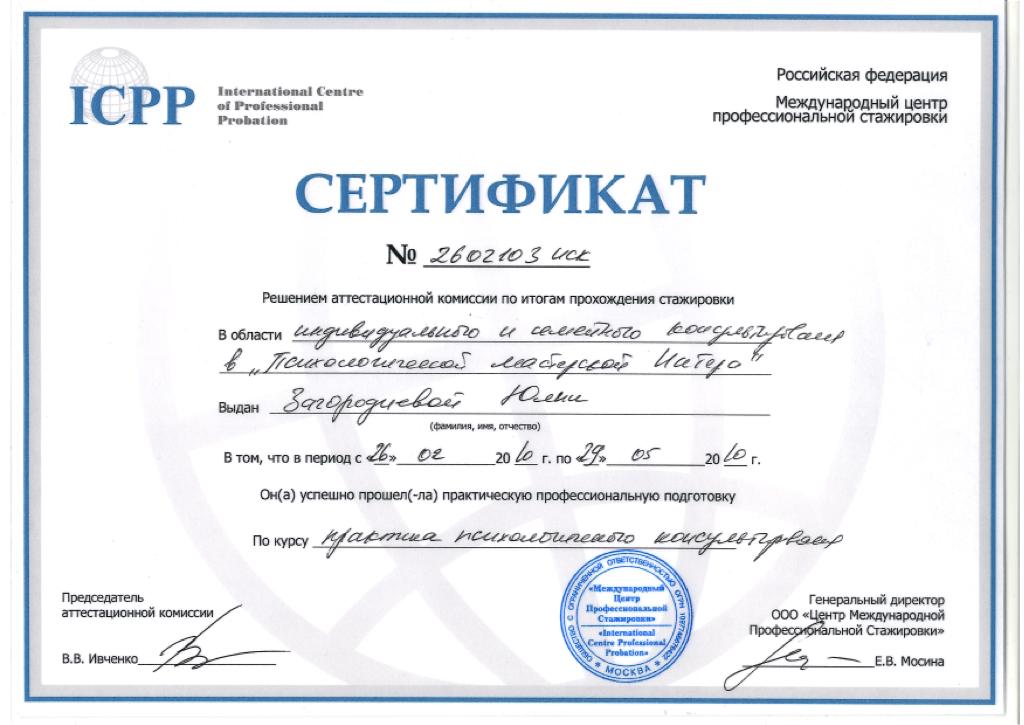 ICPP
International Centre
of Professional
Probation
Российская федерация
Международный центр
профессиональной стажировки
СЕРТИФИКАТ
№ 2602103 иск
Решением аттестационной комиссии по итогам прохождения стажировки
В области индивидуального и семейного консультирования
в „Психологической мастерской Интего"
Выдан Загородневой Юлии
(фамилия, имя, отчество)
В том, что в период с «26» 02 2010 г. по «29» 05 2010 г.
Он(а) успешно прошел(-ла) практическую профессиональную подготовку
По курсу практика психологического консультирования
Председатель
аттестационной комиссии
В.В. Ивченко
ОБЩЕСТВО С ОГРАНИЧЕННОЙ ОТВЕТСТВЕННОСТЬЮ ОГРН
«Международный
Центр
Профессиональной
Стажировки»
«International
Centre Professional
Probation»
* МОСКВА *
Генеральный директор
ООО «Центр Международной
Профессиональной Стажировки»
Е.В. Мосина